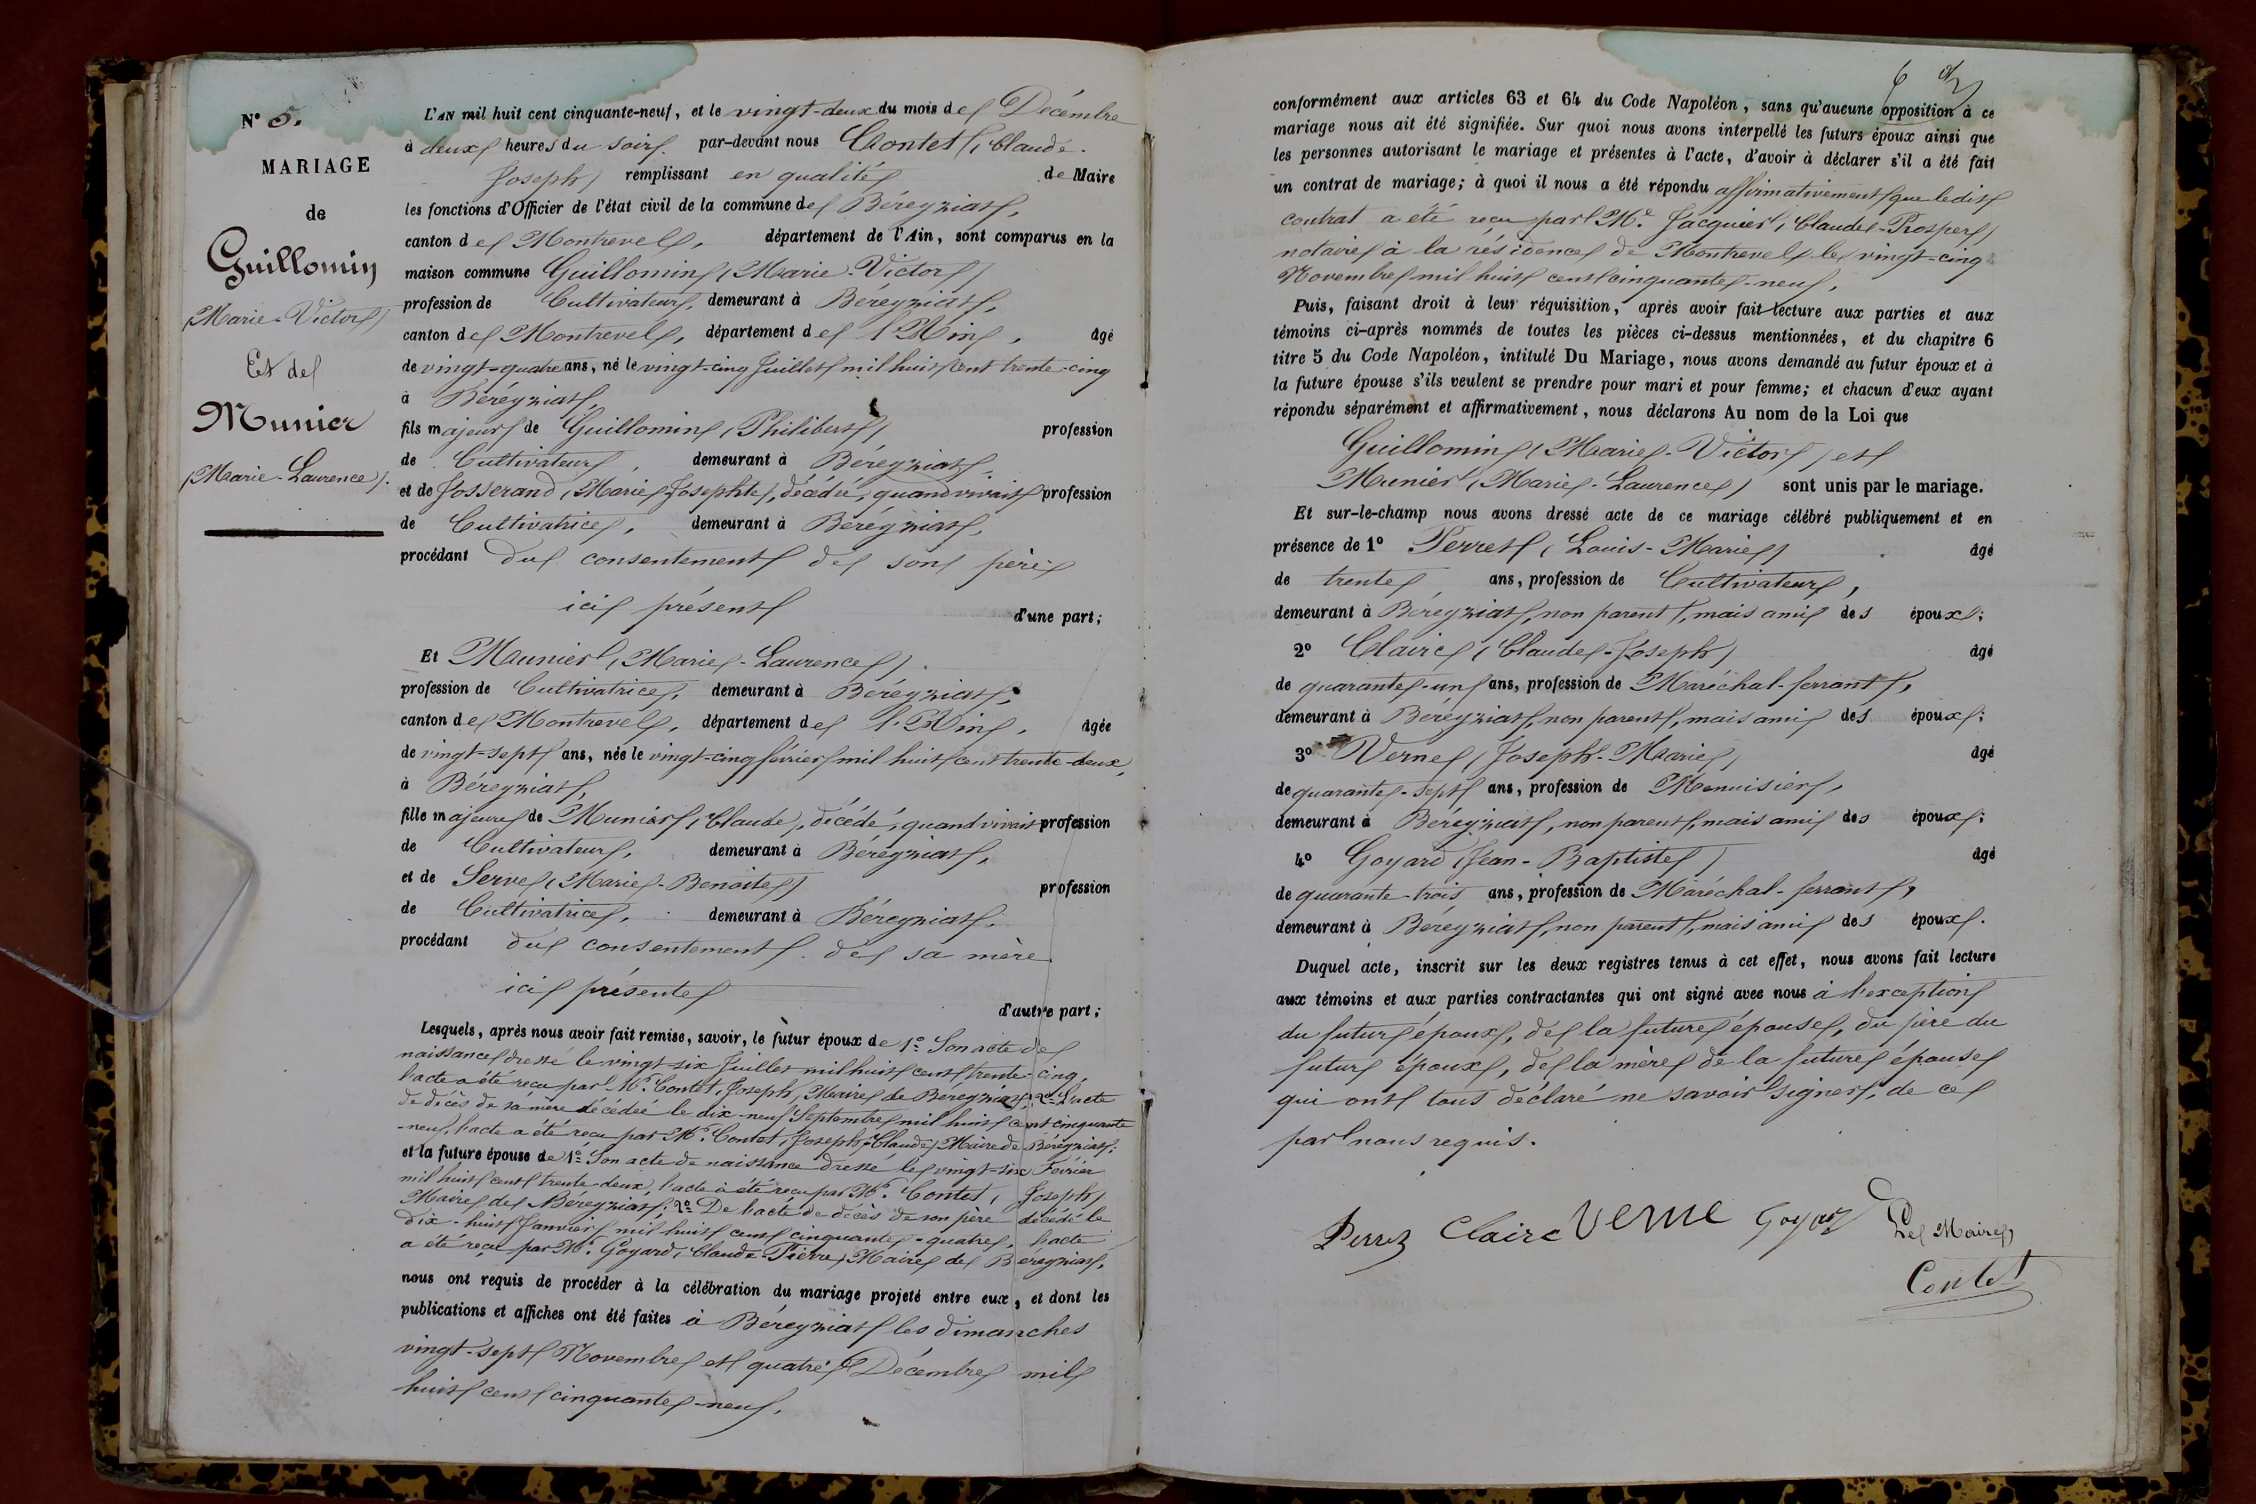 N° 5.
MARIAGE
de
Guillomin
(Marie-Victor)
Et de
Munier
(Marie-Laurence).
L'AN mil huit cent cinquante-neuf, et le vingt-deux du mois de Décembre
à deux heures du soir. par-devant nous Contet, Claude-
Joseph) remplissant en qualité de Maire
les fonctions d'Officier de l'état civil de la commune de Béreyziat,
canton de Montrevel, département de l'Ain, sont comparus en la
maison commune Guillomin (Marie-Victor)
profession de Cultivateur, demeurant à Béreyziat,
canton de Montrevel, département de l'Ain, âgé
de vingt-quatre ans, né le vingt-cinq Juillet mil huit cent trente-cinq
à Béreyziat,
fils majeur de Guillomin (Philibert) profession
de Cultivateur, demeurant à Béreyziat,
et de Josserand (Marie Josephte), décédée, quand vivait profession
de Cultivatrice, demeurant à Béreyziat,
procédant du consentement de son père
ici présent d'une part;
Et Munier (Marie-Laurence).
profession de Cultivatrice, demeurant à Béreyziat,
canton de Montrevel, département de l'Ain, âgée
de vingt-sept ans, née le vingt-cinq février mil huit cent trente-deux,
à Béreyziat,
fille majeure de Munier (Claude), décédé, quand vivait profession
de Cultivateur, demeurant à Béreyziat,
et de Serve (Marie-Benoite) profession
de Cultivatrice, demeurant à Béreyziat,
procédant du consentement de sa mère
ici présente
d'autre part;
Lesquels, après nous avoir fait remise, savoir, le futur époux de 1° Son acte de
naissance dressé le vingt-six Juillet mil huit cent trente-cinq,
l'acte a été reçu par Mr. Contet, Joseph, Maire de Béreyziat; 2° L'acte
de décès de sa mère décédée le dix-neuf Septembre mil huit cent cinquante
-neuf, l'acte a été reçu par Mr. Contet, Joseph-Claude, Maire de Béreyziat;
et la future épouse de 1° Son acte de naissance dressé le vingt-six Février
mil huit cent trente-deux, l'acte a été reçu par Mr. Contet, Joseph,
Maire de Béreyziat; 2° De l'acte de décès de son père décédé le
dix-huit Janvier mil huit cent cinquante-quatre, l'acte
a été reçu par Mr. Goyard, Claude-Pierre, Maire de Béreyziat,
nous ont requis de procéder à la célébration du mariage projeté entre eux, et dont les
publications et affiches ont été faites à Béreyziat les dimanches
vingt-sept Novembre et quatre Décembre mil
huit cent cinquante-neuf,
6
conformément aux articles 63 et 64 du Code Napoléon, sans qu'aucune opposition à ce
mariage nous ait été signifiée. Sur quoi nous avons interpellé les futurs époux ainsi que
les personnes autorisant le mariage et présentes à l'acte, d'avoir à déclarer s'il a été fait
un contrat de mariage; à quoi il nous a été répondu affirmativement que le dit
contrat a été reçu par Me. Jacquier, Claude-Prosper,
notaire à la résidence de Montrevel le vingt-cinq
Novembre mil huit cent cinquante-neuf,
Puis, faisant droit à leur réquisition, après avoir fait lecture aux parties et aux
témoins ci-après nommés de toutes les pièces ci-dessus mentionnées, et du chapitre 6
titre 5 du Code Napoléon, intitulé Du Mariage, nous avons demandé au futur époux et à
la future épouse s'ils veulent se prendre pour mari et pour femme; et chacun d'eux ayant
répondu séparément et affirmativement, nous déclarons Au nom de la Loi que
Guillomin (Marie-Victor) et
Munier (Marie-Laurence) sont unis par le mariage.
Et sur-le-champ nous avons dressé acte de ce mariage célébré publiquement et en
présence de 1° Perret (Louis-Marie) âgé
de trente ans, profession de Cultivateur,
demeurant à Béreyziat, non parent, mais ami des époux;
2° Claire (Claude-Joseph) âgé
de quarante-un ans, profession de Maréchal-ferrant,
demeurant à Béreyziat, non parent, mais ami des époux;
3° Verne (Joseph-Marie) âgé
de quarante-sept ans, profession de Menuisier,
demeurant à Béreyziat, non parent, mais ami des époux;
4° Goyard (Jean-Baptiste) âgé
de quarante-trois ans, profession de Maréchal-ferrant,
demeurant à Béreyziat, non parent, mais ami des époux.
Duquel acte, inscrit sur les deux registres tenus à cet effet, nous avons fait lecture
aux témoins et aux parties contractantes qui ont signé avec nous à l'exception
du futur époux, de la future épouse, du père du
futur époux, de la mère de la future épouse
qui ont tous déclaré ne savoir signer, de ce
par nous requis.
Perret Claire Verne Goyard Le Maire,
Contet